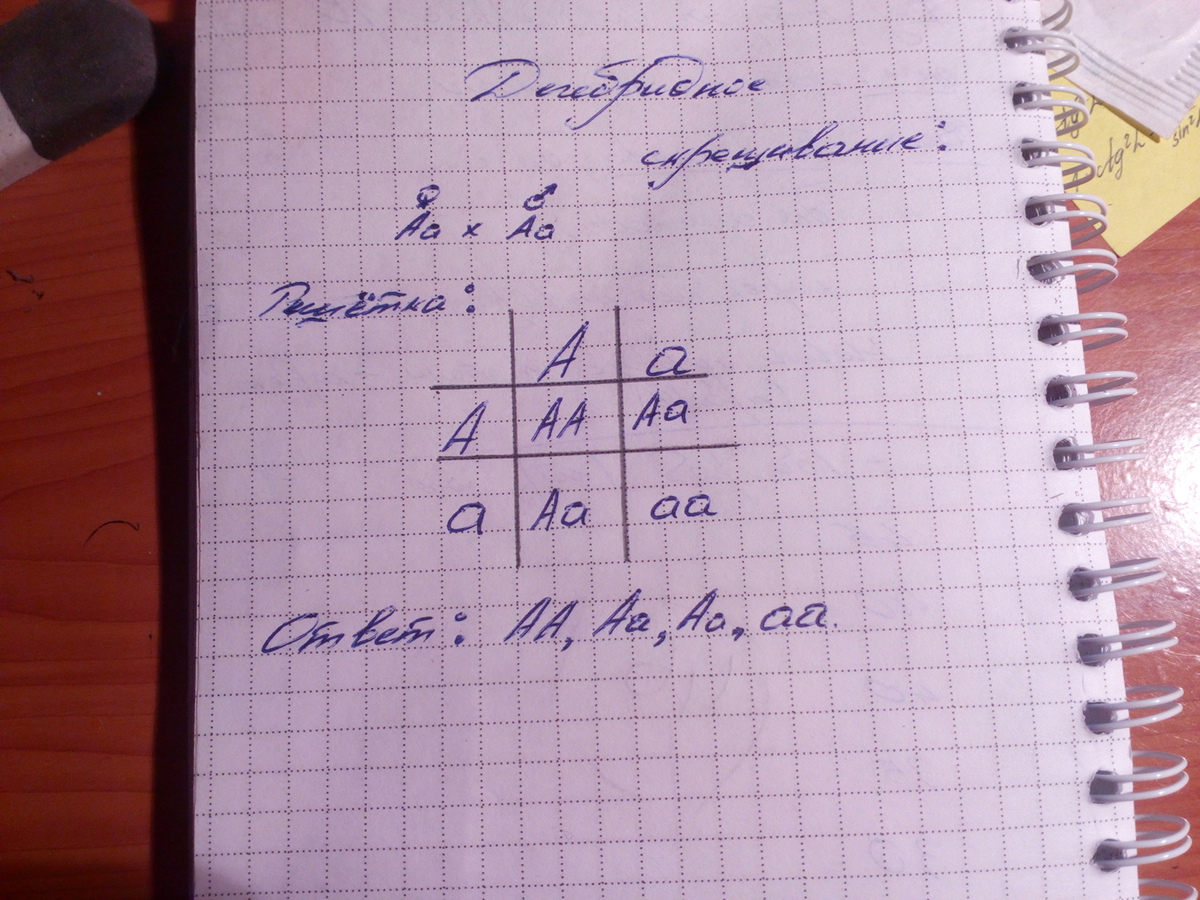 Дигебридное
скрещивание:
♀ ♂
Aa x Aa
Решётка:
A a
A AA Aa
a Aa aa
Ответ: AA, Aa, Aa, aa.
Ag²L
sin²